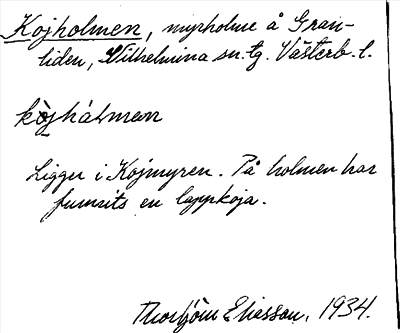 Kojholmen, myrholme å Gran-
liden, Vilhelmina sn. tg. Västerb. l.
kòjhàlmen
Ligger i Kojmyren. På holmen har
funnits en lappkoja.
Thorbjörn Eliasson, 1934.